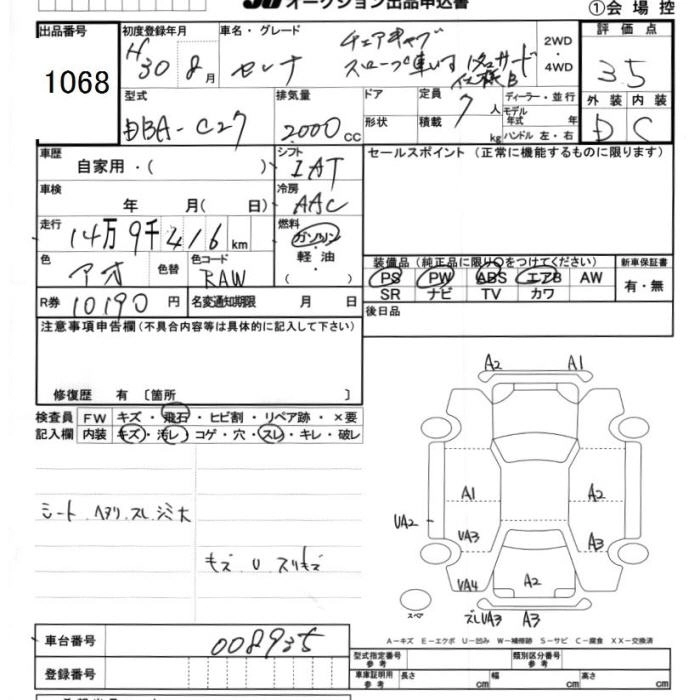 オークション出品申込書
①会場控
出品番号 初度登録年月 車名・グレード 評価点
1068 H30 8月 セレナ チェアキャブ
スロープ 車いす 1名
2WD・4WD 35
型式 排気量 ドア 定員 ディーラー・並行 外装 内装
DBA-C27 2000cc 7人 モデル年式 年 D C
形状 積載 kg ハンドル 左・右
車歴 シフト セールスポイント (正常に機能するものに限ります)
自家用・( ) IAT
車検 冷房
年 月( 日) AAC
走行 燃料
14万9千416km ガソリン
軽・油
( )
色 色替 色コード 装備品(純正品に限り○をつけてください) 新車保証書
アオ RAW PS PW ABS エアB AW 有・無
SR ナビ TV カワ
R券 10190円 名変通知期限 月 日 後日品
注意事項申告欄(不具合内容等は具体的に記入して下さい)
修復歴 有 〔箇所 〕
検査員 FW キズ・飛石・ヒビ割・リペア跡・×要
記入欄 内装 キズ・汚レ・コゲ・穴・スレ・キレ・破レ
シート ヘタリ スレ シミ大
キズ U スリキズ
A2 A1
A1 A2
UA2
UA3 A3
UA4 A2
スペア ズレUA3 A3
A-キズ E-エクボ U-凹み W-補修跡 S-サビ C-腐食 XX-交換済
車台番号 008935
型式指定番号 参考 類別区分番号 参考
登録番号 車庫証明用 参考 長さ cm 幅 cm 高さ cm